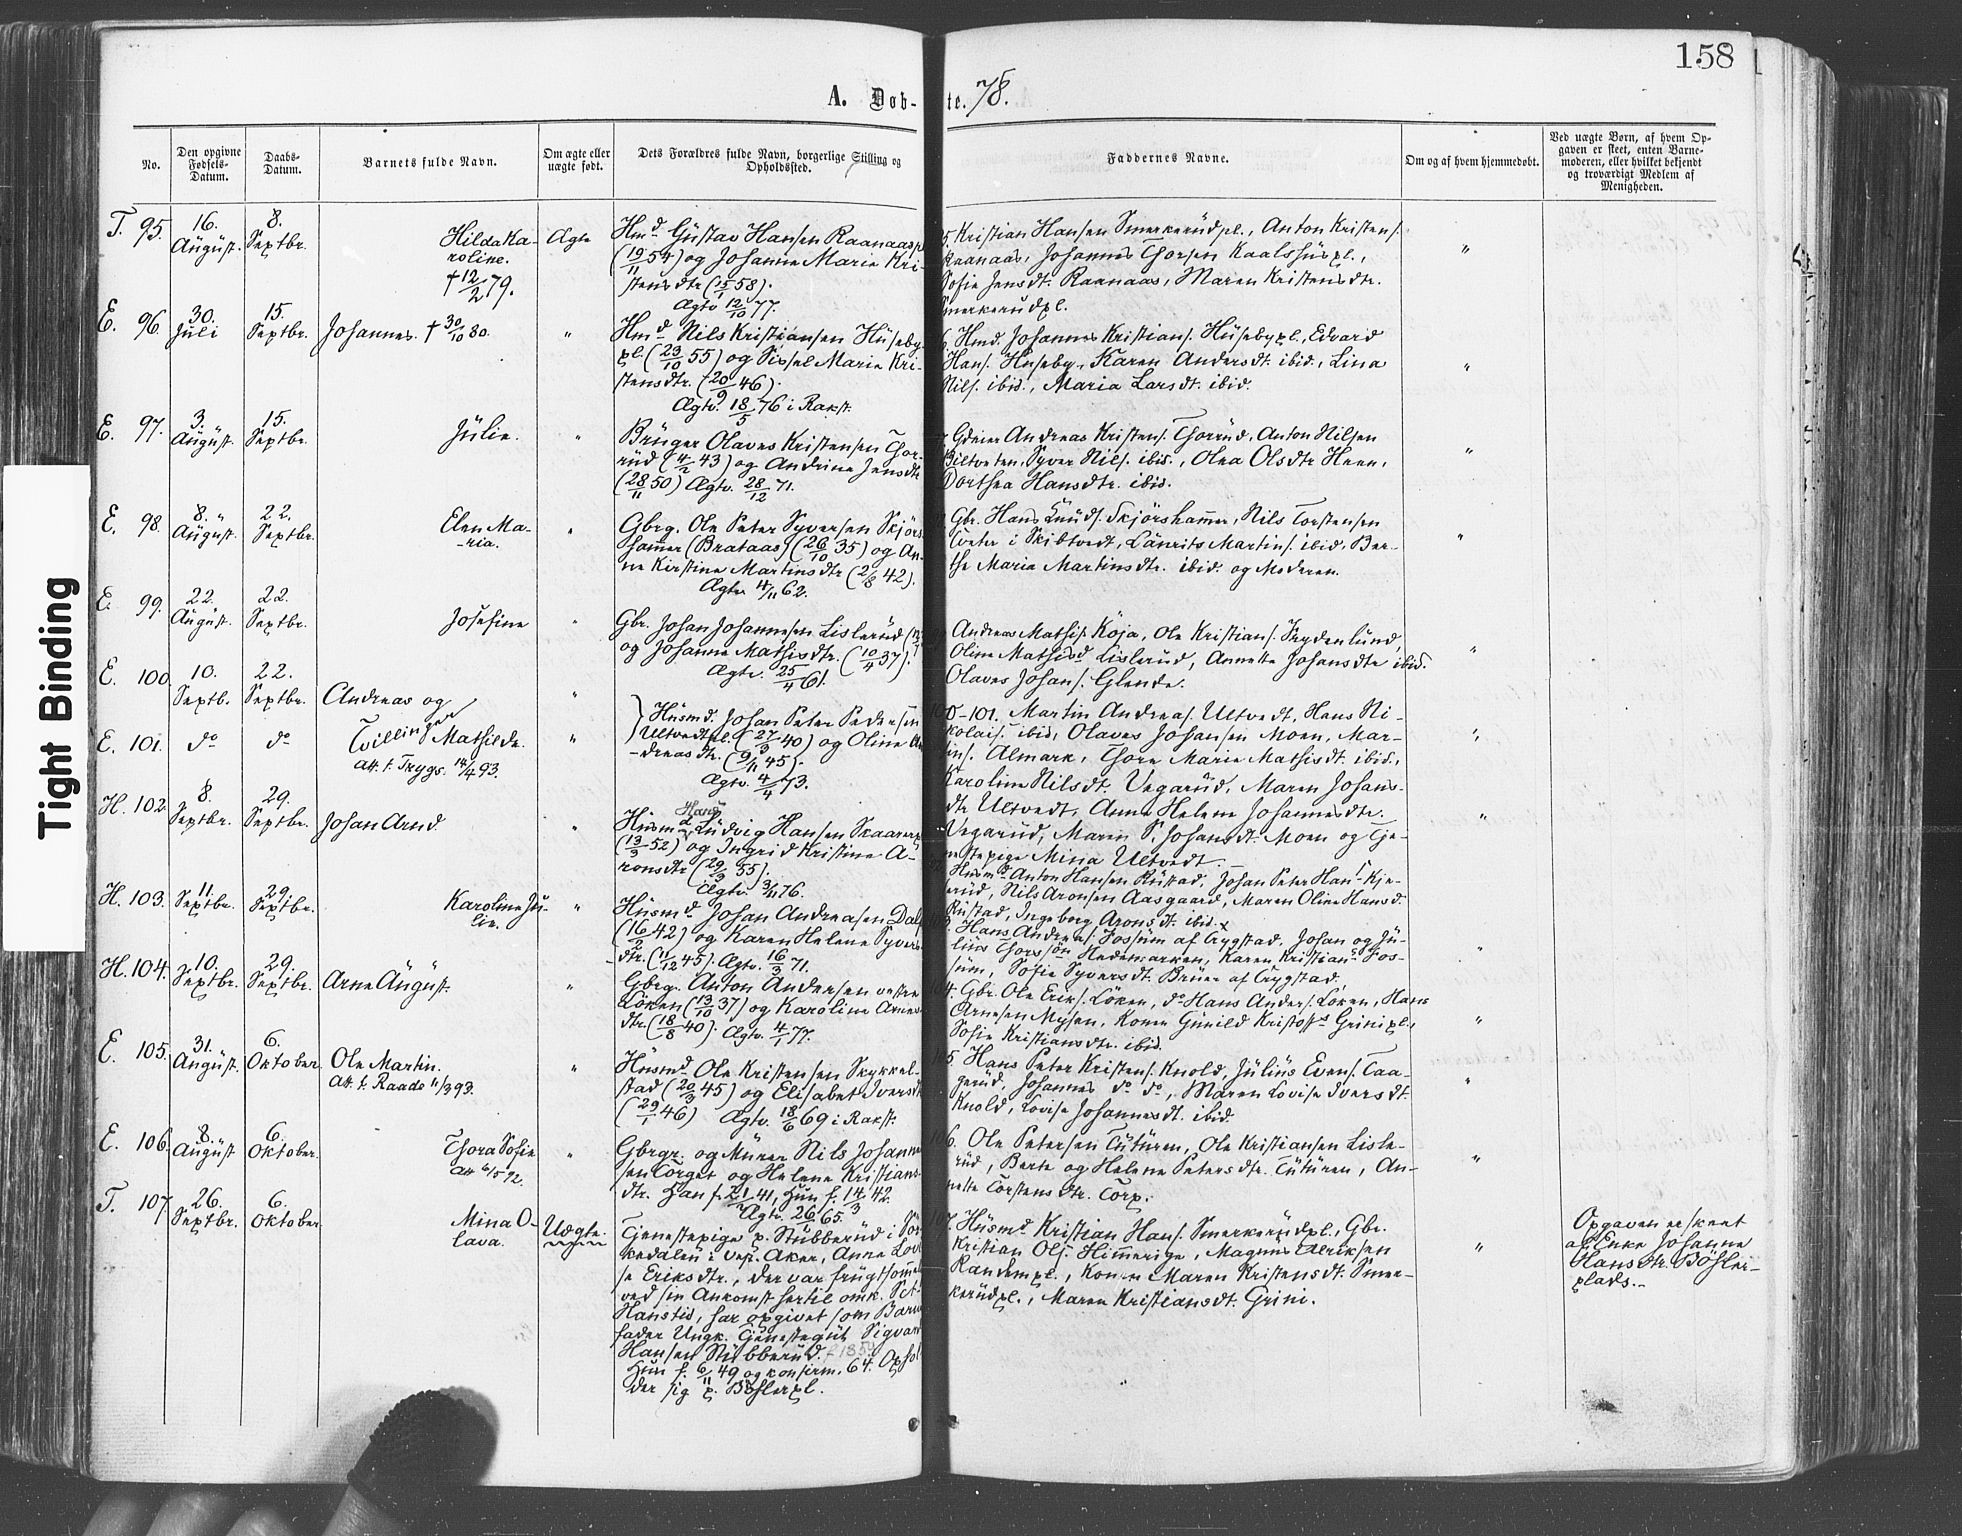 158
A. Døb-
te. 78.
No.
Den opgivne Fødsels-Datum.
Daabs-Datum.
Barnets fulde Navn.
Om ægte eller uægte født.
Dets Forældres fulde Navn, borgerlige Stilling og Opholdssted.
Faddernes Navne.
Om og af hvem hjemmedøbt.
Ved uægte Børn, af hvem Opgaven er skeet, enten Barnemoderen, eller hvilket bekjendt og troværdigt Medlem af Menigheden.
Tight Binding
T. 95. 16. August. 8. Septbr. Hilda Karoline. † 12/2 79. Ægte
Hmd. Gustav Hansen Raanaaspl
(19/11 54) og Johanne Marie Kri-
stensdtr (15/1 58).
Ægtv 12/10 77.
Kristian Hansen Smerkerudpl., Anton Kristens.
Raanaas, Johannes Thorsen Kaalshuspl.,
Sofie Jensdt. Raanaas, Maren Kristensdtr.
Smerkerudpl.
"
E. 96. 30. Juli 15. Septbr. Johannes. † 30/10 80. "
Hmd. Nils Kristiansen Huseby-
pl. (23/10 55) og Sissel Marie Kri-
stensdtr. (20/9 46).
Ægtv. 18/5 76 i Rakst.
6. Hmd. Johannes Kristians. Husebypl., Edvard
Hans. Huseby, Karen Andersdt. ibid., Lina
Nils. ibid., Maria Larsdt. ibid.
"
E. 97. 3. August. 15. Septbr. Julie. "
Bruger Olaves Kristensen Thor-
rud (4/2 43) og Andrine Jensdtr
(28/11 50) Ægtv. 28/12 71.
Gdeier Andreas Kristens. Thorrud, Anton Nilsen
Biltveten, Syver Nils. ibid., Olea Olsdtr Heen,
Dorthea Hansdtr. ibid.
"
E. 98. 8. August. 22. Septbr. Elen Maria. "
Gbrg. Ole Peter Syversen Skjørs-
hamer (Brataas) (26/10 35) og An-
ne Kirstine Martinsdtr (2/8 42).
Ægtv 4/11 62.
Gbr. Hans Knuds. Skjørshammer, Nils Torstensen
Tveter i Skibtvedt, Laurits Martins. ibid. Ber-
the Marie Martinsdtr. ibid. og Moderen.
"
E. 99. 22. August. 22. Septbr. Josefine "
Gbr. Johan Johannesen Lislerud
og Johanne Mathisdtr. (10/4 37).
Ægtv. 25/4 61.
Andreas Mathis. Koja, Ole Kristians. Frydenlund,
Oline Mathisd. Lislerud, Annette Johansdtr ibid.
Olaves Johans. Glende.
"
E. 100. 10. Septb. 22. Septbr. Andreas og "
E. 101. do do Tvillinger Mathilde. "
Att. t. Trygs. 14/4 93.
Husmd. Johan Peter Pedersen
Ultvedtpl. (27/3 40) og Oline An-
dreasdtr. (9/11 45).
Ægtv. 4/4 73.
100-101. Martin Andreas. Ultvedt, Hans Ni-
kolais. ibid, Olaves Johansen Moen, Mar-
tins. Almark, Thore Marie Mathisdt. ibid.,
Karoline Nilsdt. Vegarud, Maren Johans-
dtr Ultvedt, Anne Helene Johannesdtr.
Vegarud, Maren S. Johansdt. Moen og Tje-
nestepige Mina Ultvedt.
"
H. 102. 8. Septbr. 29. Septbr. Johan Arnd. "
Husmd Ludvig Hansen Skaarerpl
(13/3 52) og Ingrid Kristine A-
ronsdtr (29/3 55).
Ægtv. 3/11 76.
Husmd Anton Hansen Rustad, Johan Peter Hans. Kje-
rud, Nils Aronsen Aasgaard, Maren Oline Hansd.
Rustad, Ingeborg Aronsdt. ibid.
"
H. 103. 11. Septbr. 29. Septbr. Karoline Julie. "
Husmd. Johan Andreasen Dals
(16/2 42) og Karen Helene Syvers-
dtr. (11/12 45). Ægtv. 16/3 71.
Hans Andreas. Fossum af Trygstad, Johan og Ju-
lius Thorssøn Hedemarken, Karen Kristians. Fos-
sum, Sofie Syversdt. Bruer af Trygstad.
"
H. 104. 10. Septbr. 29. Septbr. Arne August. "
Gbrg. Anton Andersen vestre
Løken (13/10 37) og Karoline Arnes-
dtr. (18/8 40). Ægtv. 4/1 77.
104. Gbr. Ole Eriks. Løken, do Hans Anders. Løken, Hans
Arnesen Mysen, Kone Gunild Kristofs Grinipl.,
Sofie Kristiansdtr. ibid.
"
E. 105. 31. August. 6. Oktober. Ole Martin. "
Att. t. Raade 11/3 93.
Husmd. Ole Kristensen Skykkel-
stad (20/3 45) og Elisabet Iversdt
(29/1 46) Ægtv. 18/6 69 i Rakst.
105. Hans Peter Kristens. Knold, Julius Evens. Taa-
gerud, Johannes do do, Maren Lovise Iversdt.
Knold, Lovise Johannesdt. ibid.
"
E. 106. 8. August 6. Oktober. Thora Sofie "
Att 6/5 92.
Gbrgr. og Murer Nils Johanne-
sen Torget og Helene Kristians-
dtr. Han f. 21/1 41, Hun f. 14/3 42.
Ægtv. 26/ 65.
106. Ole Petersen Tuturen, Ole Kristiansen Lisle-
rud, Berte og Helene Petersdtr. Tuturen, An-
nette Torstensdtr. Torp.
"
T. 107. 26. Septbr. 6. Oktober. Mina Olava. Uægte.
Tjenestepige p. Stubberud i Sør-
kedalen i vest. Aker, Anne Lovi-
se Eriksdtr., der var frugtsommel.
ved sin Ankomst hertil omk. Set.
Hanstid, har opgivet som Barne-
fader Ungk. Tjenestegut Sigvart
Hansen Stubberud. f 1859
Hun f. 6/11 49 og konfirm. 64. Ophol-
der sig p. Bøhlerpl.
107. Husmd Kristian Hans. Smerkerudpl., Gbr.
Kristian Ols. Himmerige, Magnus Ulriksen
Randempl., Konen Maren Kristensdt. Smer-
kerudpl., Maren Kristiansdt. Grini.
"
Opgaven er skeet
af Enke Johanne
Hansdtr. Bøhler-
plads.